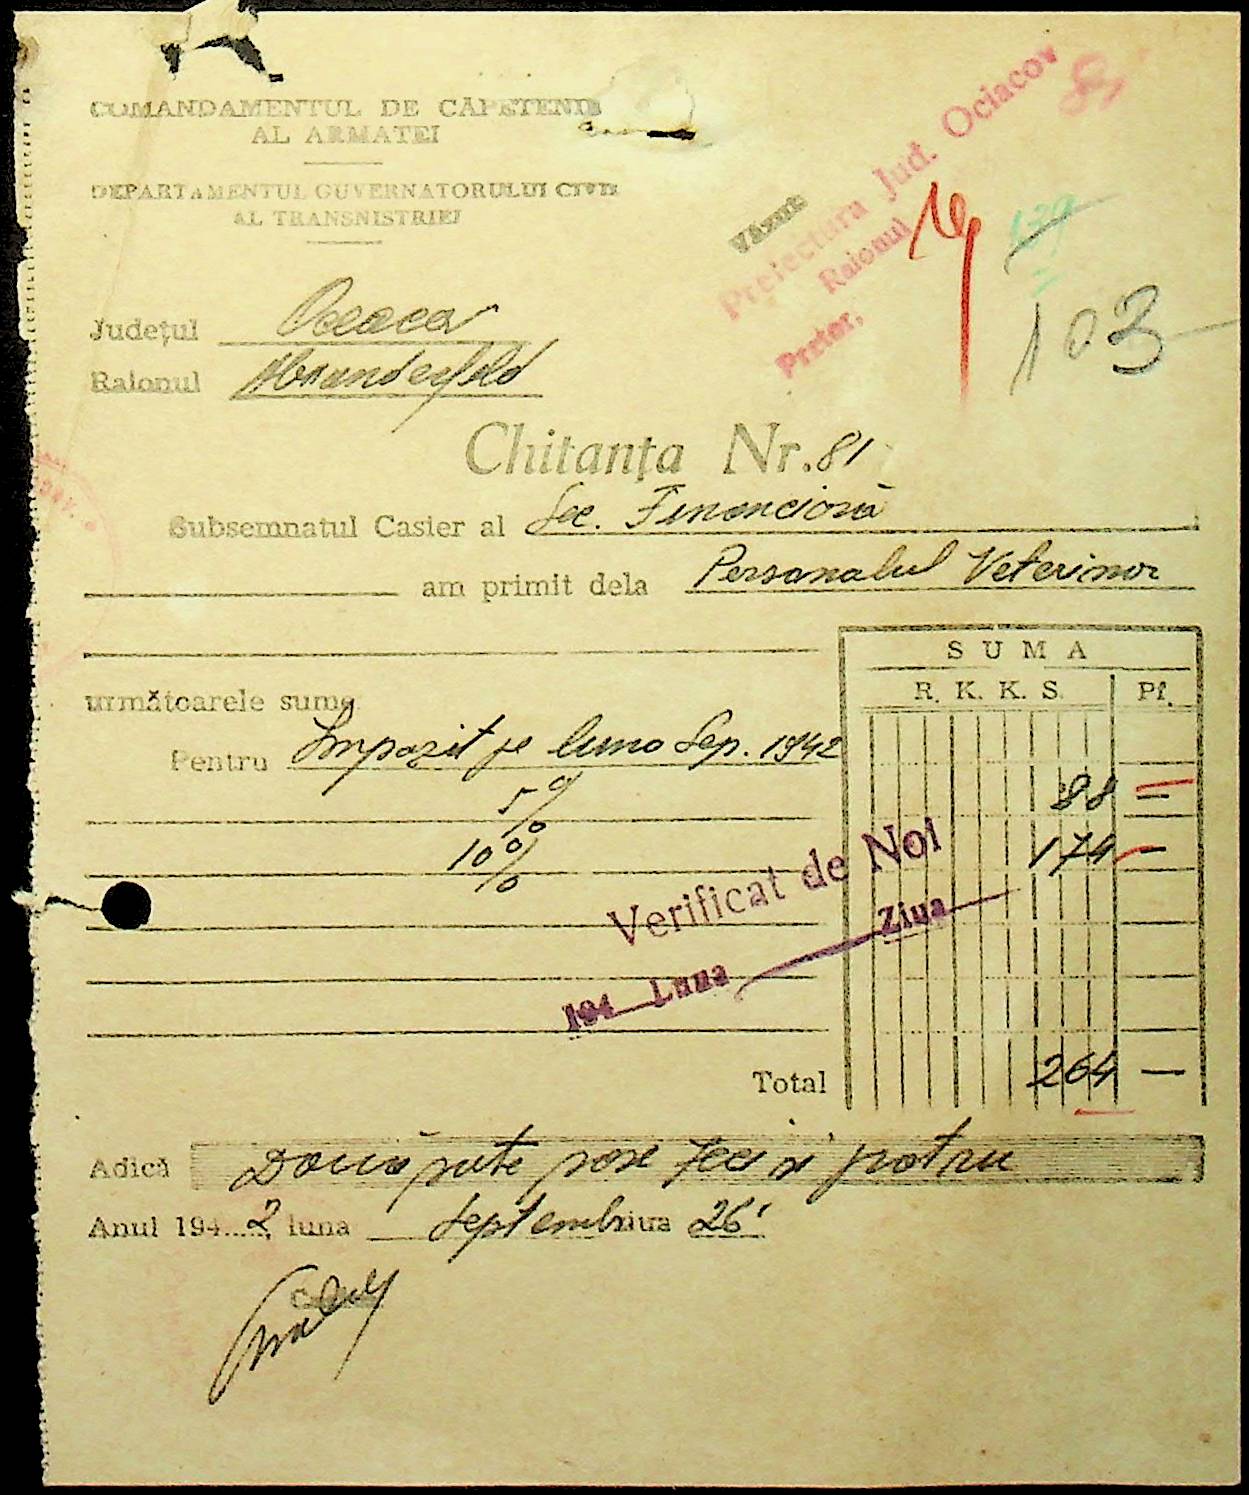 COMANDAMENTUL DE CAPETENIE
AL ARMATEI
DEPARTAMENTUL GUVERNATORULUI CIVIL
AL TRANSNISTRIEI
Văzut
Prefectura Jud. Ociacov
Raionul
Pretor,
81
139
103
Județul
Raionul
Chitanța Nr. 81
Subsemnatul Casier al Sec. Financiară
am primit dela Personalul Veterinar
SUMA
R. K. K. S. Pf.
următoarele sume
Pentru Impozit pe luna Sep. 1942
5% 88 —
10% 174 —
Verificat de Noi
194 Luna Ziua
Total 264 —
Adică Două sute șase zeci și patru
Anul 1942 luna Septembrie ziua 26